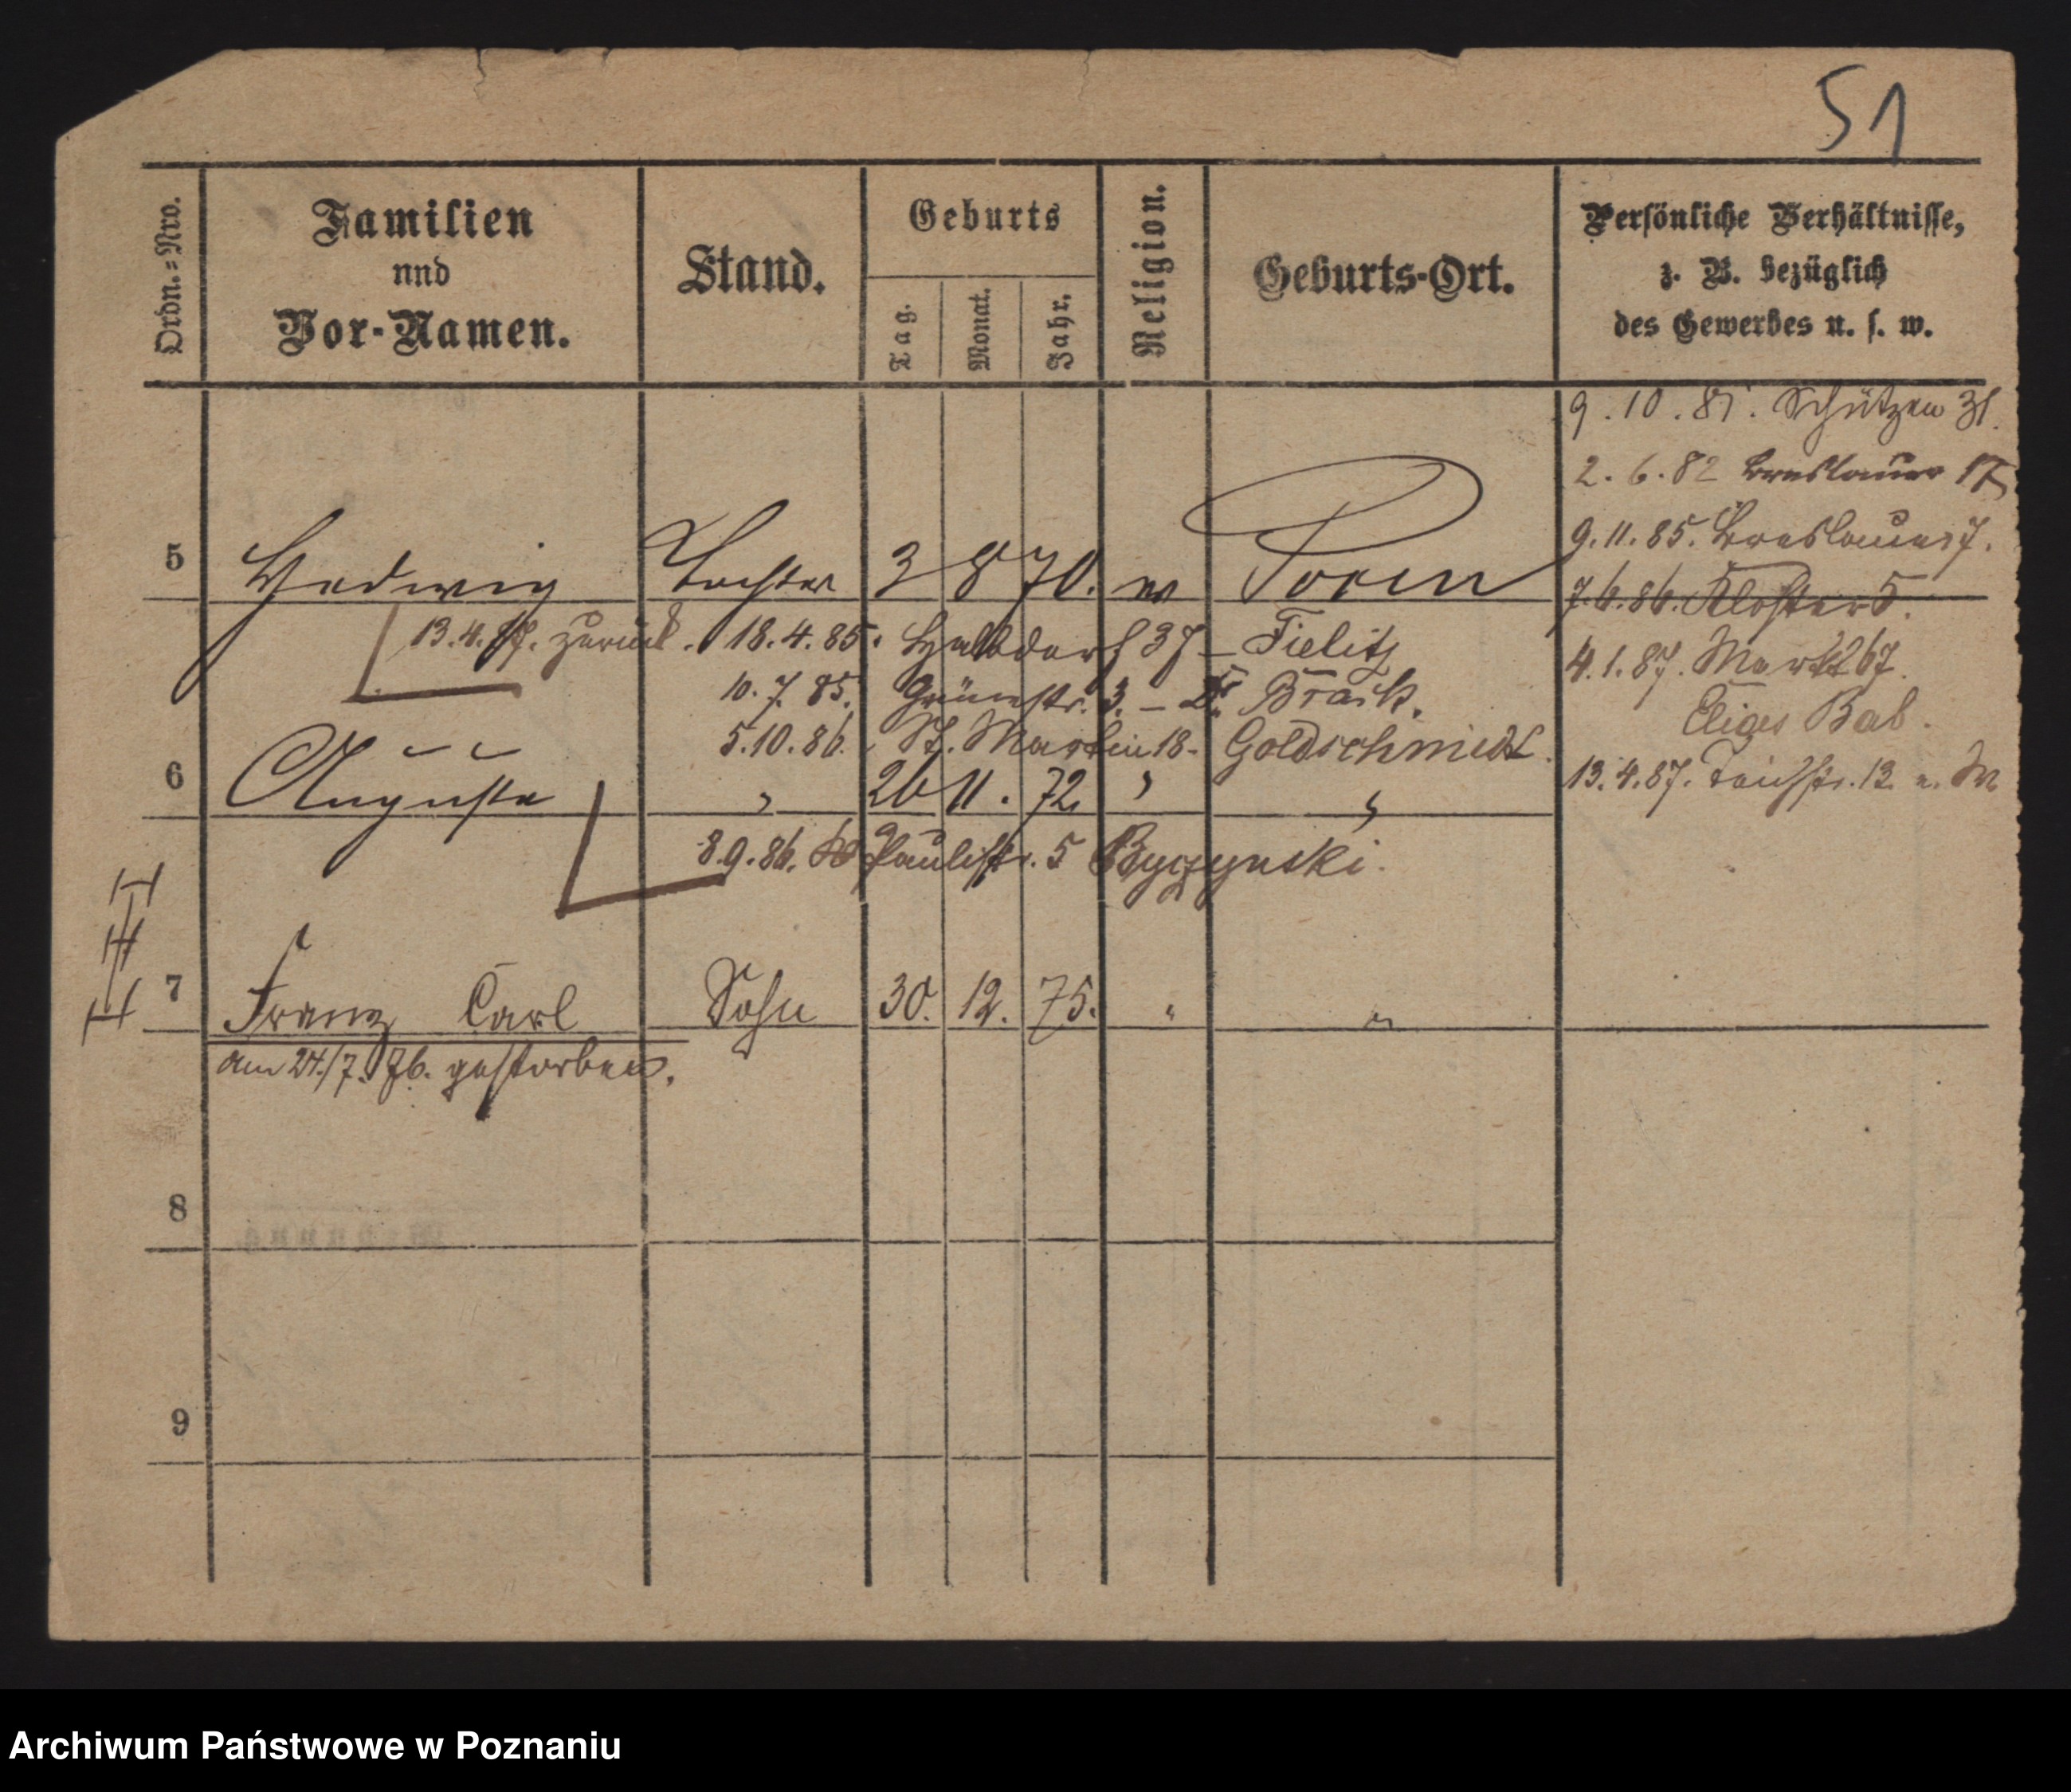 51
Ordn.=Nro.
Familien
und
Vor-Namen.
Stand.
Geburts
Tag.
Monat.
Jahr.
Religion.
Geburts-Ort.
Persönliche Verhältnisse,
z. B. bezüglich
des Gewerbes u. s. w.
9.10.81. Schützen 31.
2.6.82 Breslauer 17
9.11.85. Breslauer 7.
7.6.86. Kloster 5.
4.1.87. Markt 67.
Bab.
13.4.87. Teichstr. 12.
5 Hedwig Tochter 3 8 70. Posen
13.4.87. zurück. 18.4.85. Halbdorf 37 – Tielitz
10.7.85. Grünestr. 3. – Dr.
5.10.86. St. Martin 18 - Goldschmidt.
6 Auguste " 26 11. 72. " "
8.9.86. Paulistr. 5 Byczynski.
7 Franz Carl Sohn 30. 12. 75. " "
am 24./7. 76. gestorben.
8
9
Archiwum Państwowe w Poznaniu